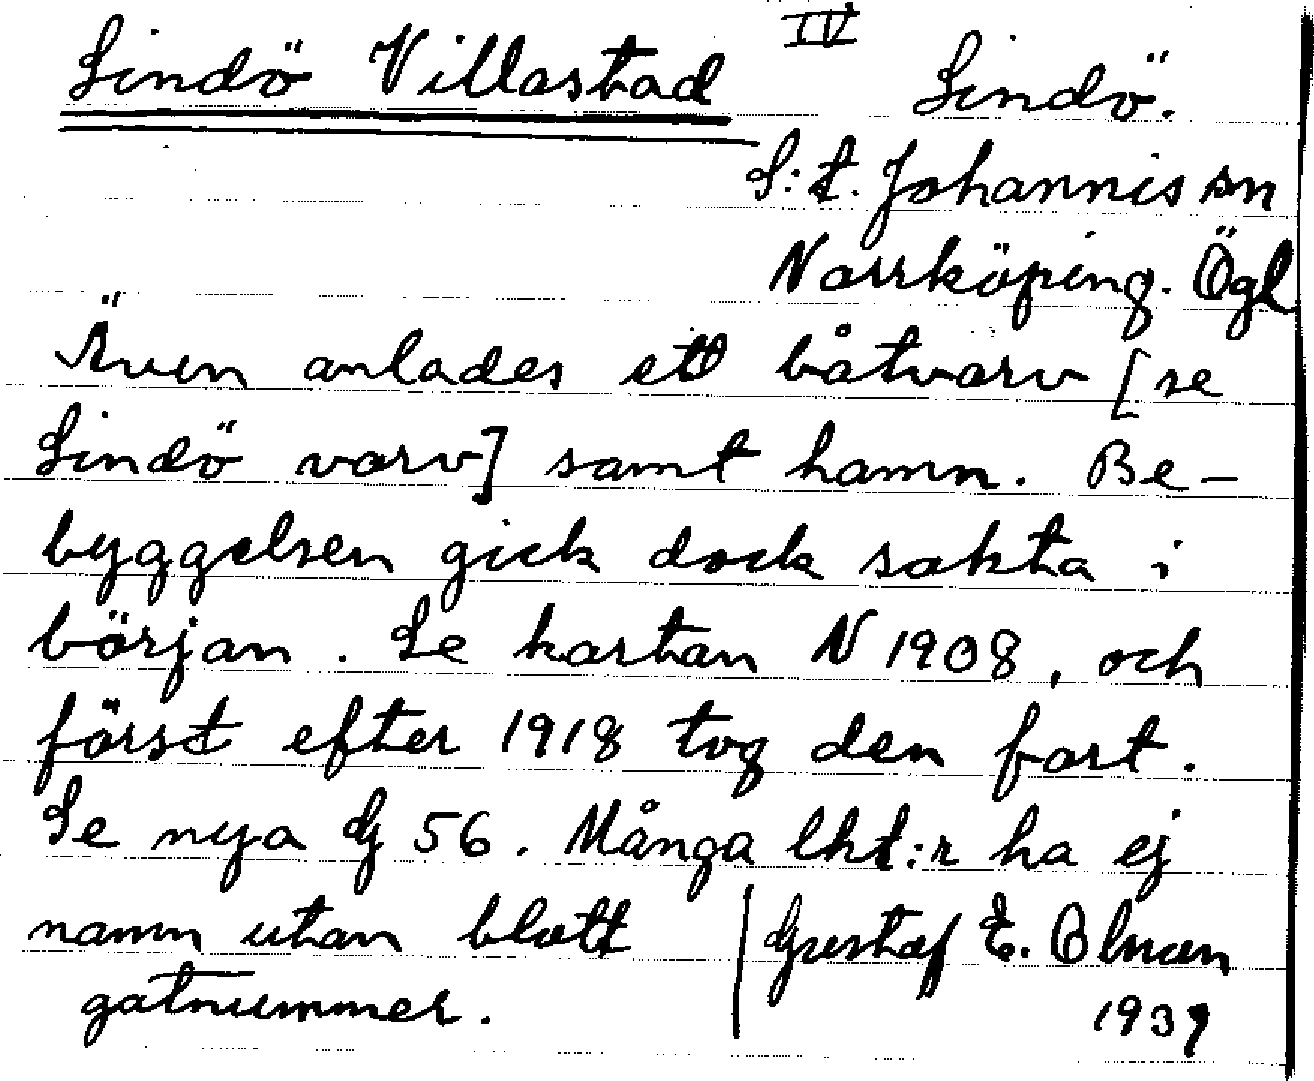 IV
Lindö Villastad
Lindö.
S:t. Johannis sn
Norrköping. Ögl
Även anlades ett båtvarv [se
Lindö varv] samt hamn. Be-
byggelsen gick dock sakta i
början. Se kartan N 1908, och
först efter 1918 tog den fart.
Se nya G 56. Många lht:r ha ej
namn utan blott
gatnummer.
Gustaf E. Olman
1939